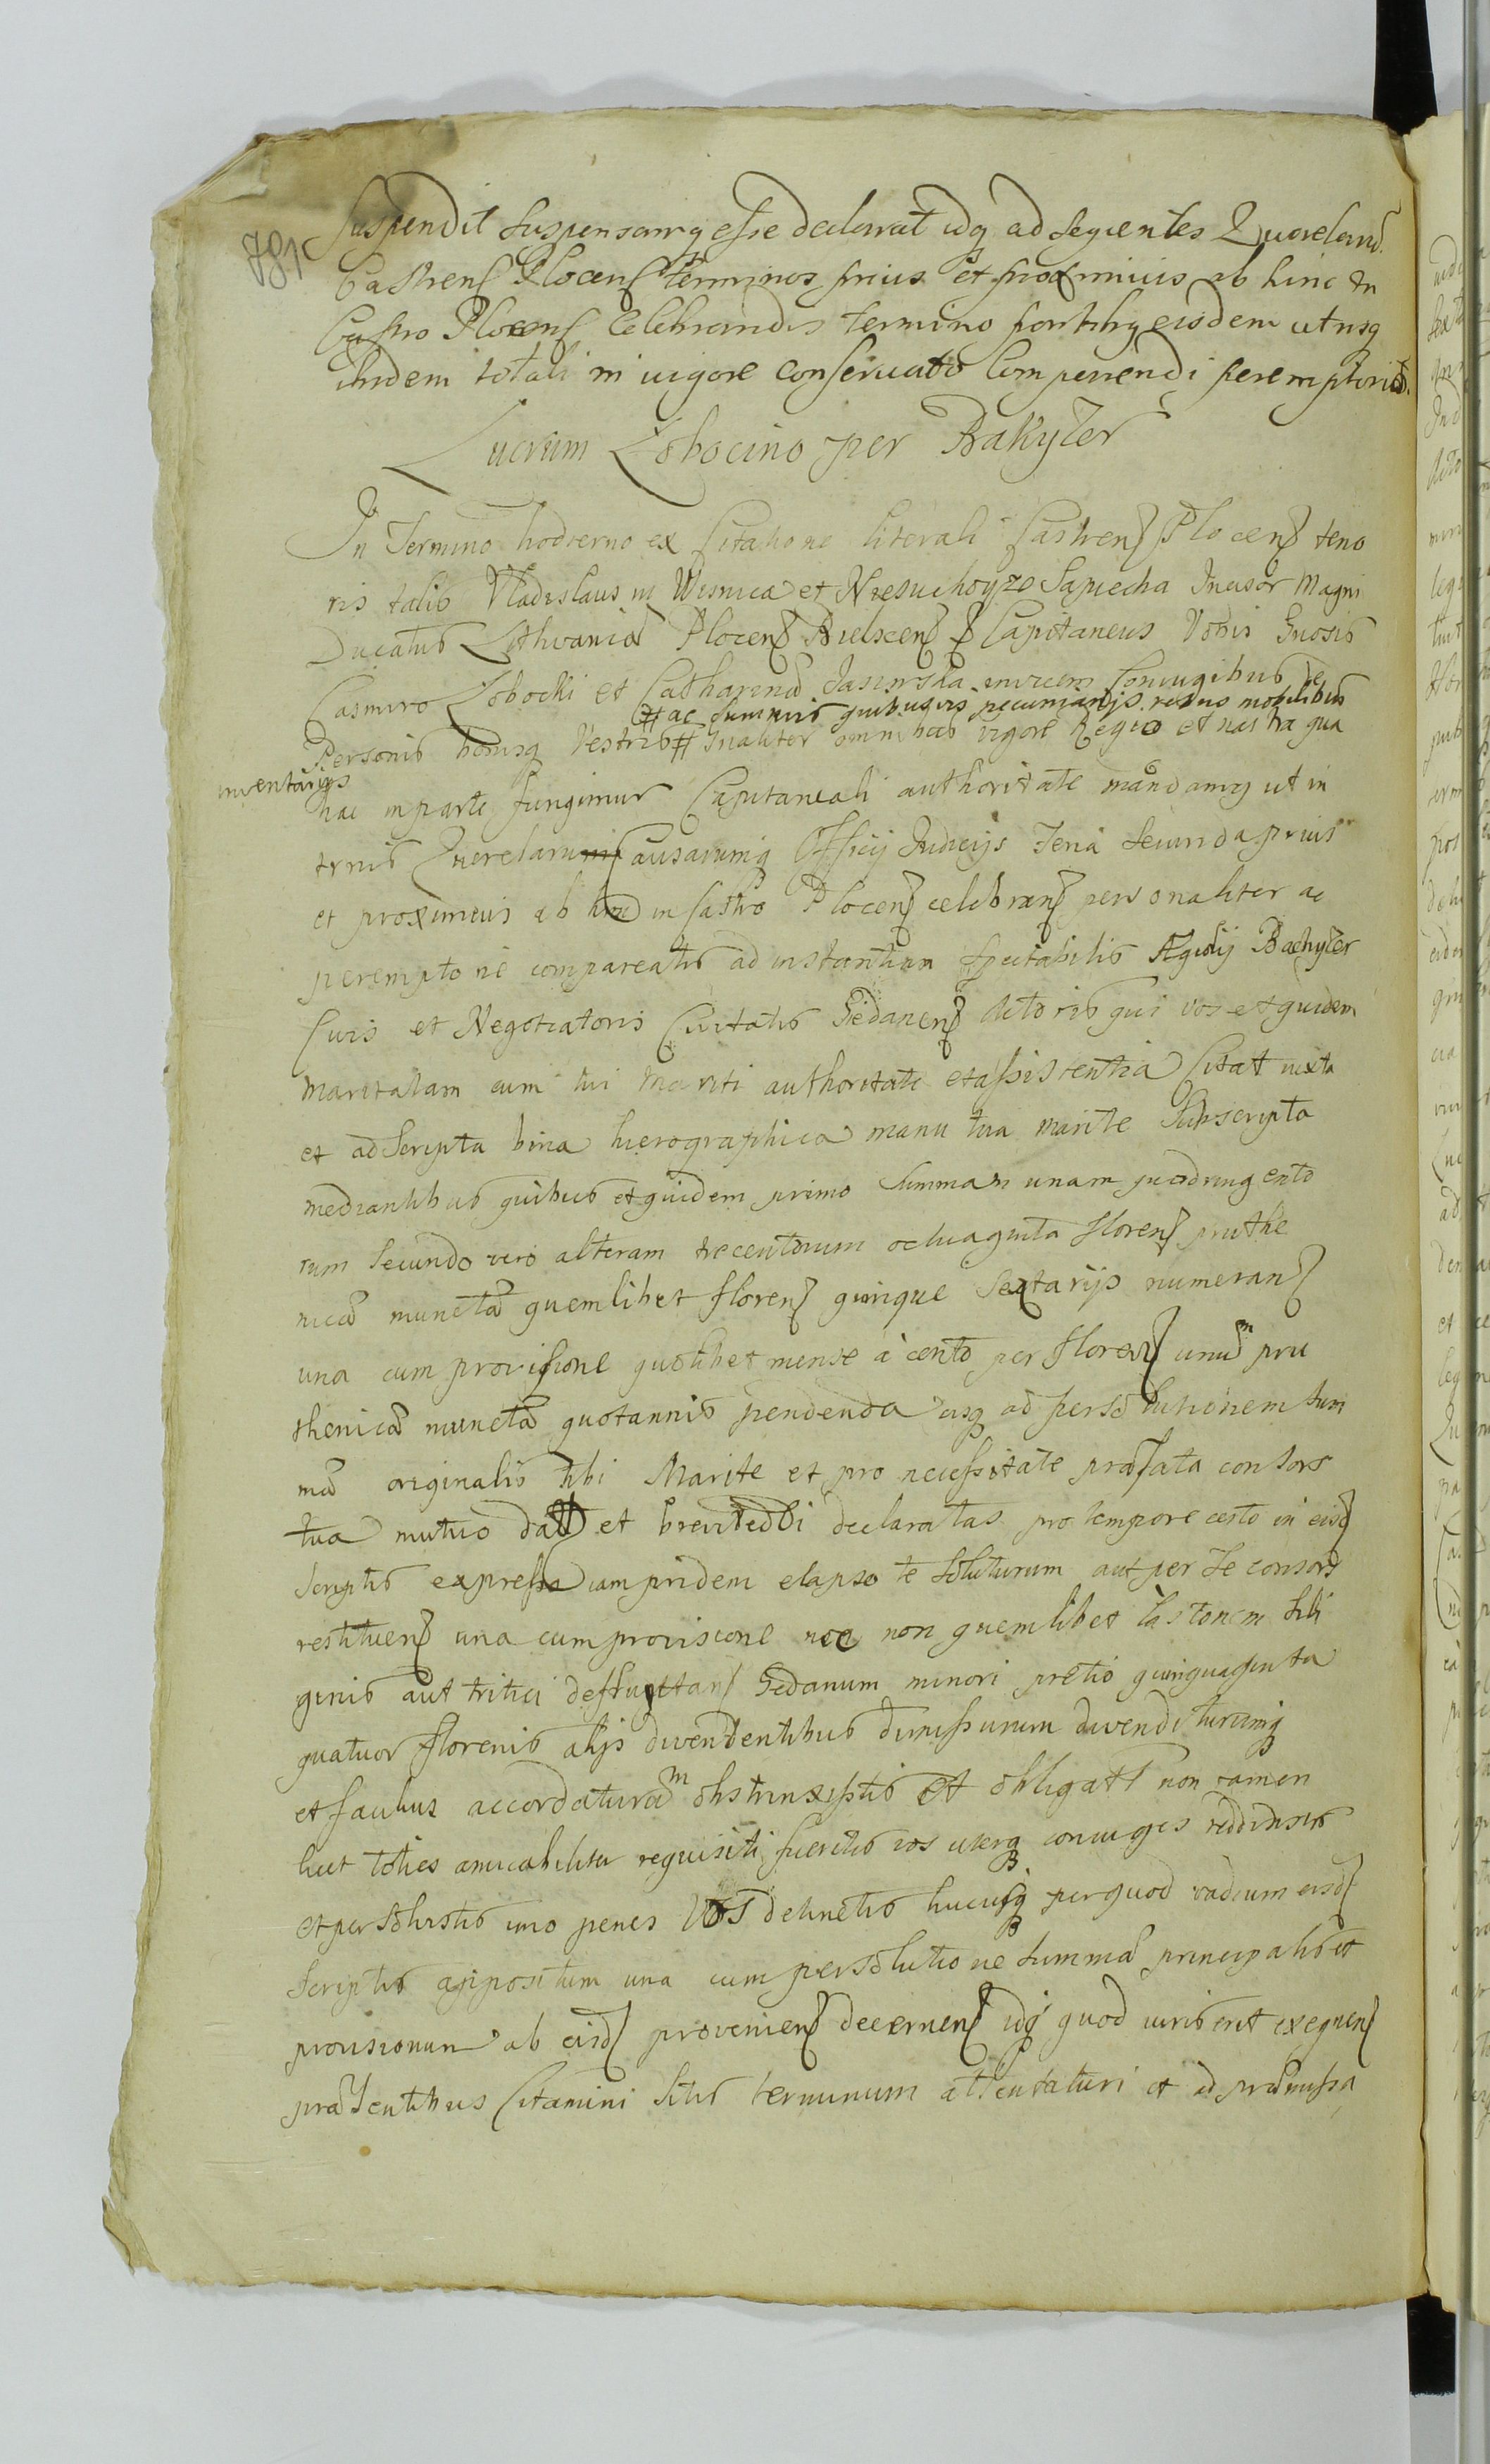 781
Suspendit Suspensamq esse declarat idq ad sequentes Querelarũ
Castrenſ Plocenſ terminos prius et proximius ab hinc in
Castro Plocenſ Celebrandis termino partibq eisdem utrisq
ibidem totali in uigore conseruato Comparendi peremptorie.
Lucrum Zobocino per Bakyler
In Termino hodierno ex Citatione literali Castrenſ Plocenſ teno
ris talis Vladislaus in Wisnica et Niesuchoyze Sapiecha Incisor Magni
Ducatus Lithvaniæ Plocenſ Bielscenſ Capitaneus Vobis Gnosis
Casmiro Zobocki et Catharinæ Jasinska invicem Coniugibus de
# ac summis quibusvis pecuniarijs rebus mobilibus
Personis bonisq Vestris # gnaliter omnibus vigore Regia et nostra qua
inventarijs
hac in parte fungimur Capitaneali authoritate mandamq ut in
trnis Querelarum Causarumq Officij Judicijs Feria Secunda prius
et proximius ab hinc in Castro Plocenſ celebranſ personaliter ac
peremptorie compareatis ad instantiam Spectabilis Ægidij Bachyler
Civis et Negotiatoris Civitatis Gedanenſ Actoris qui vos et quidem
maritatam cum tui Mariti authoritate et assistentia Citat iuxta
et ad Scripta bina hierographica manu tua marite Subscripta
mediantibus quibus et quidem primo Summam unam quadringento
rum Secundo vero alteram trecentorum octuaginta florenſ pruthe
nicæ munetæ quemlibet florenſ quinque Sextarijs numeranſ
una cum provisione quolibet mense à cento per florenſ unũ pru
thenicæ munetæ quotannis pendenda usq ad persolutionem sum
mæ originalis tibi Marite et pro necessitate præfata consors
tua mutuo dat et declaratas pro tempore certo in eisdſ
Scriptis expresso iam pridem elapso te soluturum aut per te consors
restituenſ una cum provisione nec non quemlibet lastonem sili
ginis aut tritici Gedanum minori pretio quinquaginta
quatuor florenis alijs divendentibus dimissurum divenditurumq
et accordaturam obstrinxistis et obligatſ non tamen
licet toties amicabiliter requisiti fueritis vos uterq coniuges reddidistis
et persolvistis imo penes Vos detinetis hucusq per quod vadium eisdſ
Scriptis appositum una cum persolutione Summæ principalis et
provisionum ab eisdſ provenienſ decernenſ idq quod iuris erit exequenſ
præsentibus Citamini Sitis terminum attentaturi et ad præmissa